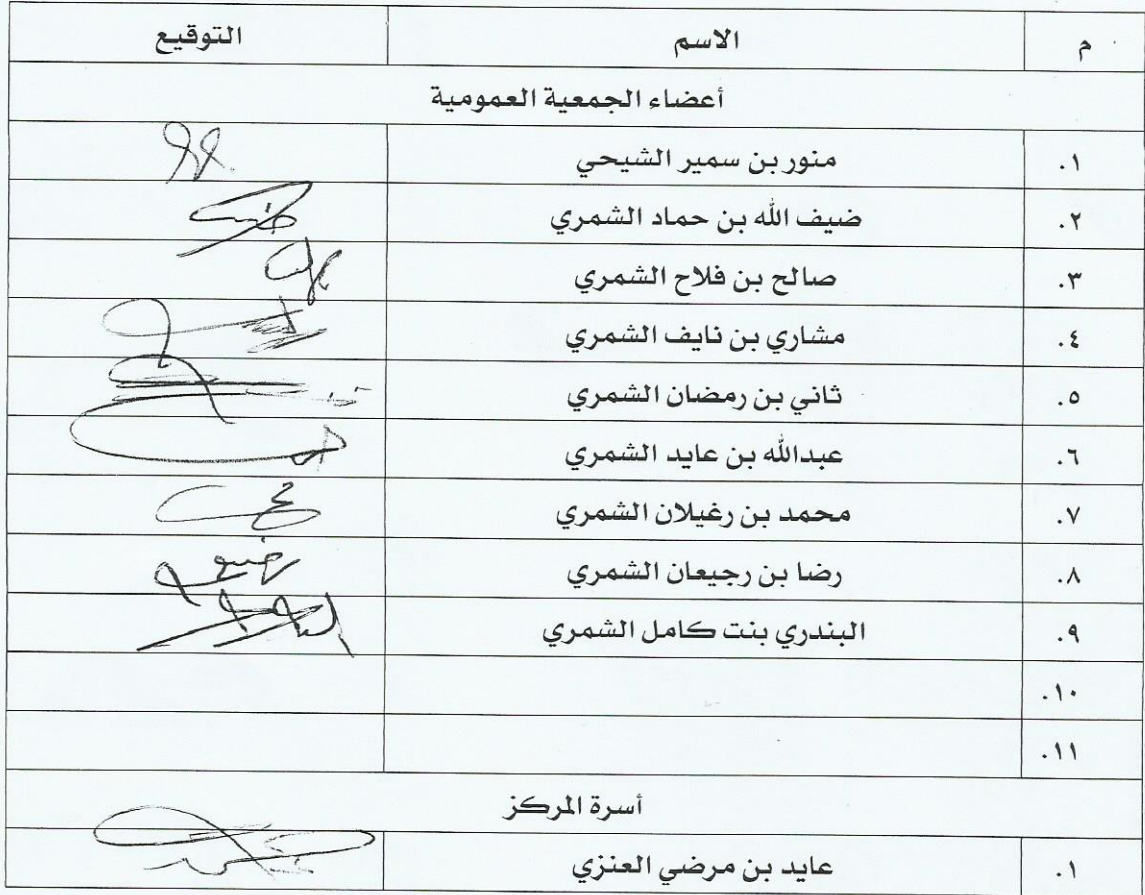 م الاسم التوقيع
أعضاء الجمعية العمومية
١. منور بن سمير الشيحي
٢. ضيف الله بن حماد الشمري
٣. صالح بن فلاح الشمري
٤. مشاري بن نايف الشمري
٥. ثاني بن رمضان الشمري
٦. عبدالله بن عايد الشمري
٧. محمد بن رغيلان الشمري
٨. رضا بن رجيعان الشمري
٩. البندري بنت كامل الشمري
١٠.
١١.
أسرة المركز
١. عايد بن مرضي العنزي